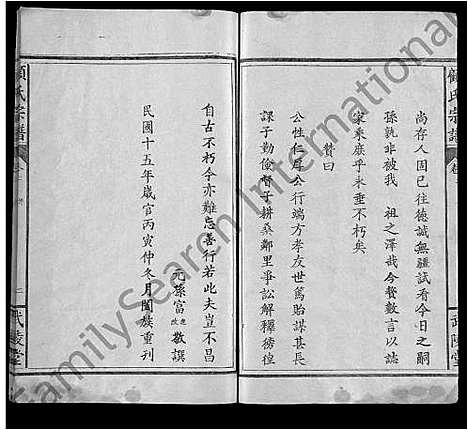 顧氏宗譜
卷
武陵堂
尚存人固已往德誠無疆試看今日之嗣
孫孰非被我 祖之澤哉今餐數言以誌
家乘庶乎永垂不朽矣
贊曰
公性仁厚公行端方孝友世篤貽謀甚長
課子勤儉督子耕桑鄰里爭訟解釋徬徨
自古不朽令亦難忘善行若此夫豈不昌
元孫富 敬撰
民國十五年歲官丙寅仲冬月闔族重刊
顧氏宗譜
卷
二
武陵堂
FamilySearch International